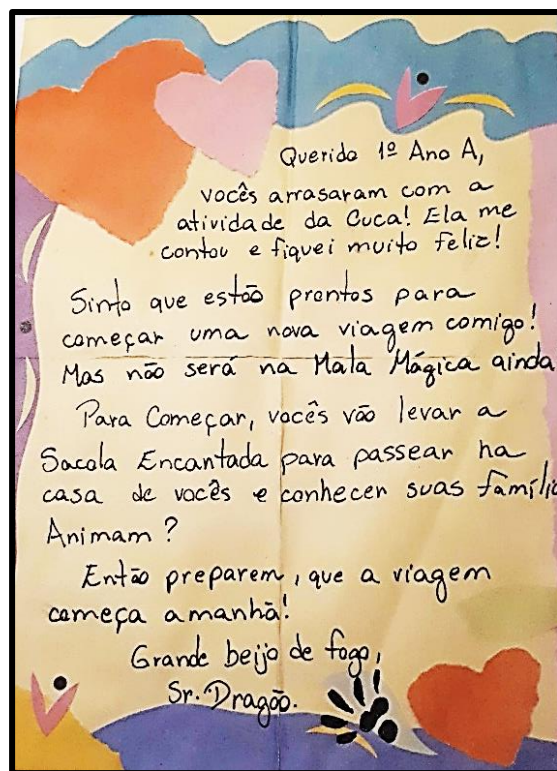 Querido 1º Ano A,
vocês arrasaram com a
atividade da Cuca! Ela me
contou e fiquei muito feliz!
Sinto que estão prontos para
começar uma nova viagem comigo!
Mas não será na Mala Mágica ainda
Para Começar, vocês vão levar a
Sacola Encantada para passear na
casa de vocês e conhecer suas famíli
Animam?
Então preparem, que a viagem
começa amanhã!
Grande beijo de fogo,
Sr. Dragão.